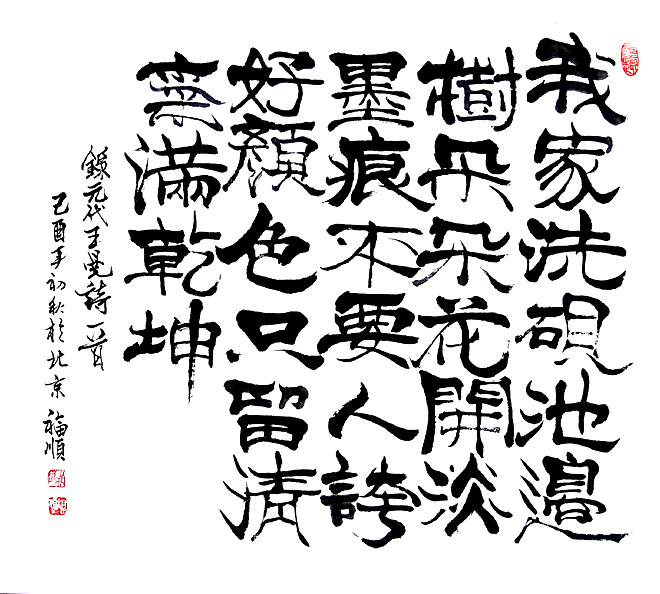 我家洗硯池邊
樹朵朵花開淡
墨痕不要人誇
好顏色只留清
氣滿乾坤
錄元代王冕詩一首
己酉年初秋於北京 福順